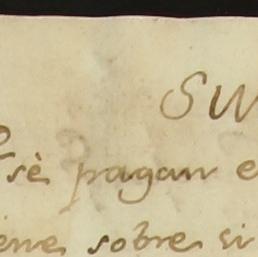 SW
sè pagan e
ene sobre si